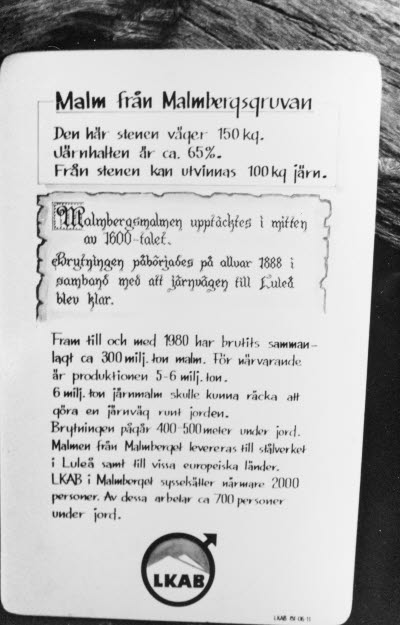 Malm från Malmbergsgruvan
Den här stenen väger 150 kg.
Järnhalten är ca. 65%.
Från stenen kan utvinnas 100 kg järn.
Malmbergsmalmen upptäcktes i mitten
av 1600-talet.
Brytningen påbörjades på allvar 1888 i
samband med att järnvägen till Luleå
blev klar.
Fram till och med 1980 har brutits samman-
lagt ca 300 milj. ton malm. För närvarande
är produktionen 5-6 milj. ton.
6 milj. ton järnmalm skulle kunna räcka att
göra en järnväg runt jorden.
Brytningen pågår 400-500 meter under jord.
Malmen från Malmberget levereras till stålverket
i Luleå samt till vissa europeiska länder.
LKAB i Malmberget sysselsätter närmare 2000
personer. Av dessa arbetar ca 700 personer
under jord.
LKAB